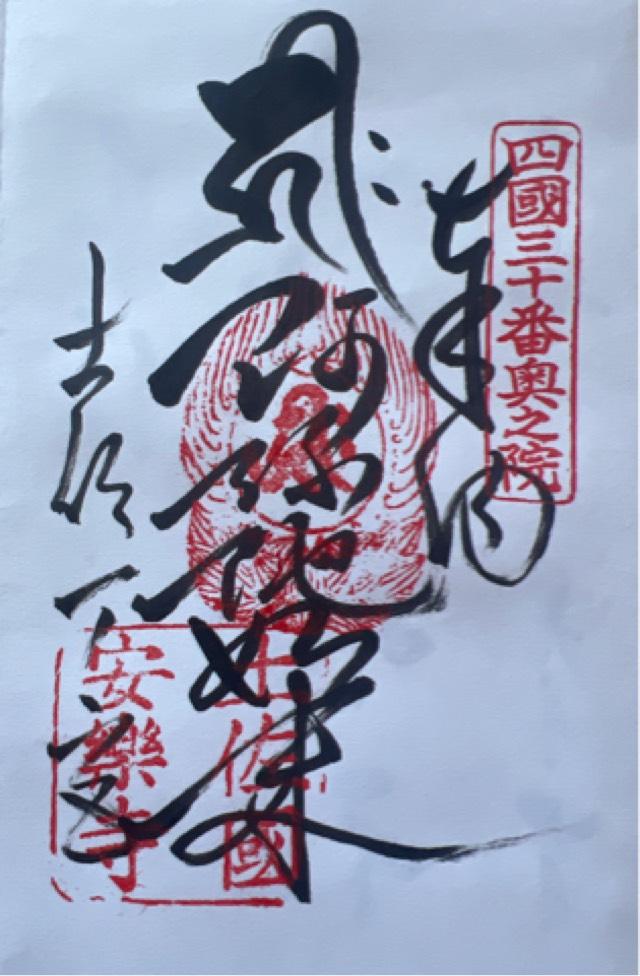 四國三十番奥之院
奉納
阿弥陀如来
土佐國
安樂寺